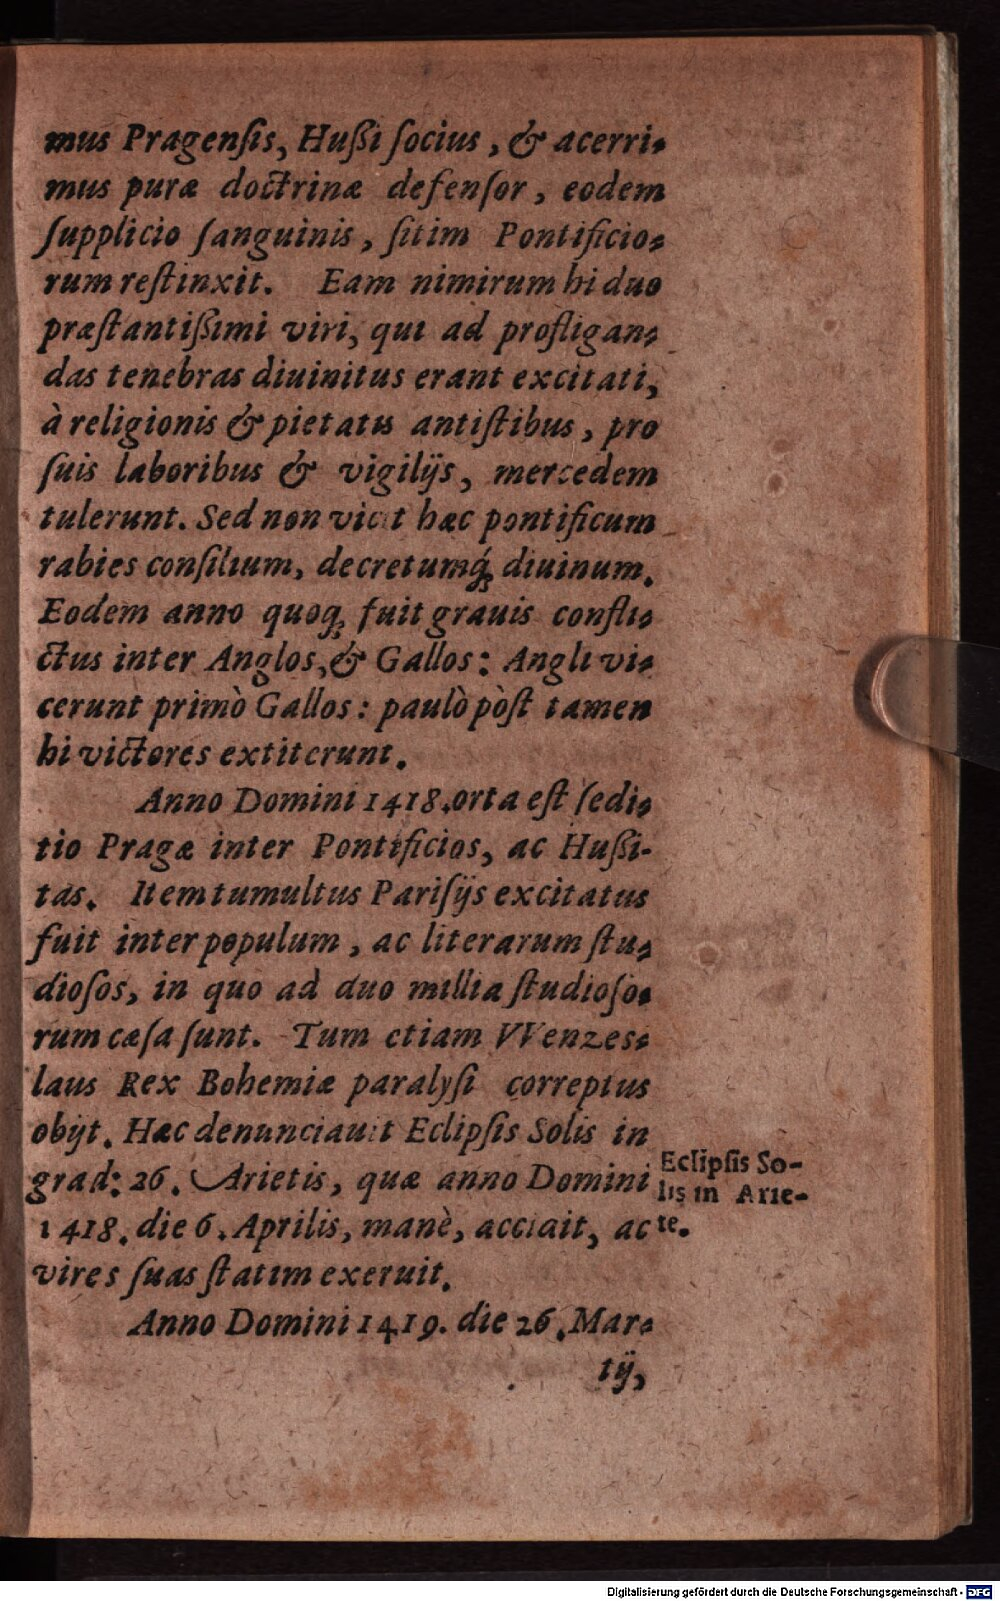 mus Pragenſis, Huſſi ſocius, & acerri-
mus puræ doctrinæ defenſor, eodem
ſupplicio ſanguinis, ſitim Pontificio-
rum reſtinxit. Eam nimirum hi duo
præſtantiſſimi viri, qui ad profligan-
das tenebras diuinitus erant excitati,
à religionis & pietatis antiſtibus, pro
ſuis laboribus & vigilijs, mercedem
tulerunt. Sed non vicit hæc pontificum
rabies conſilium, decretumq́; diuinum.
Eodem anno quoq; fuit grauis confli-
ctus inter Anglos, & Gallos: Angli vi-
cerunt primò Gallos: paulò pòſt tamen
hi victores extiterunt.
Anno Domini 1418. orta eſt ſedi-
tio Pragæ inter Pontificios, ac Huſſi-
tas. Item tumultus Pariſijs excitatus
fuit inter populum, ac literarum ſtu-
dioſos, in quo ad duo millia ſtudioſo-
rum cæſa ſunt. Tum etiam VVenzes-
laus Rex Bohemiæ paralyſi correptus
obijt. Hæc denunciauit Eclipſis Solis in
grad: 26. Arietis, quæ anno Domini
1418. die 6. Aprilis, manè, accidit, ac
vires ſuas ſtatim exeruit.
Eclipſis So-
lis in Arie-
te.
Anno Domini 1419. die 26. Mar-
tij,
Digitalisierung gefördert durch die Deutsche Forschungsgemeinschaft - DFG